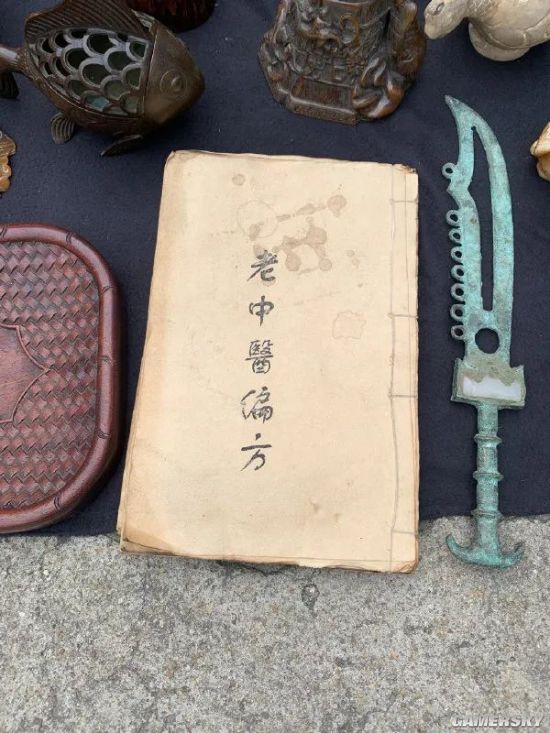 老中醫编方
GAMERSKY